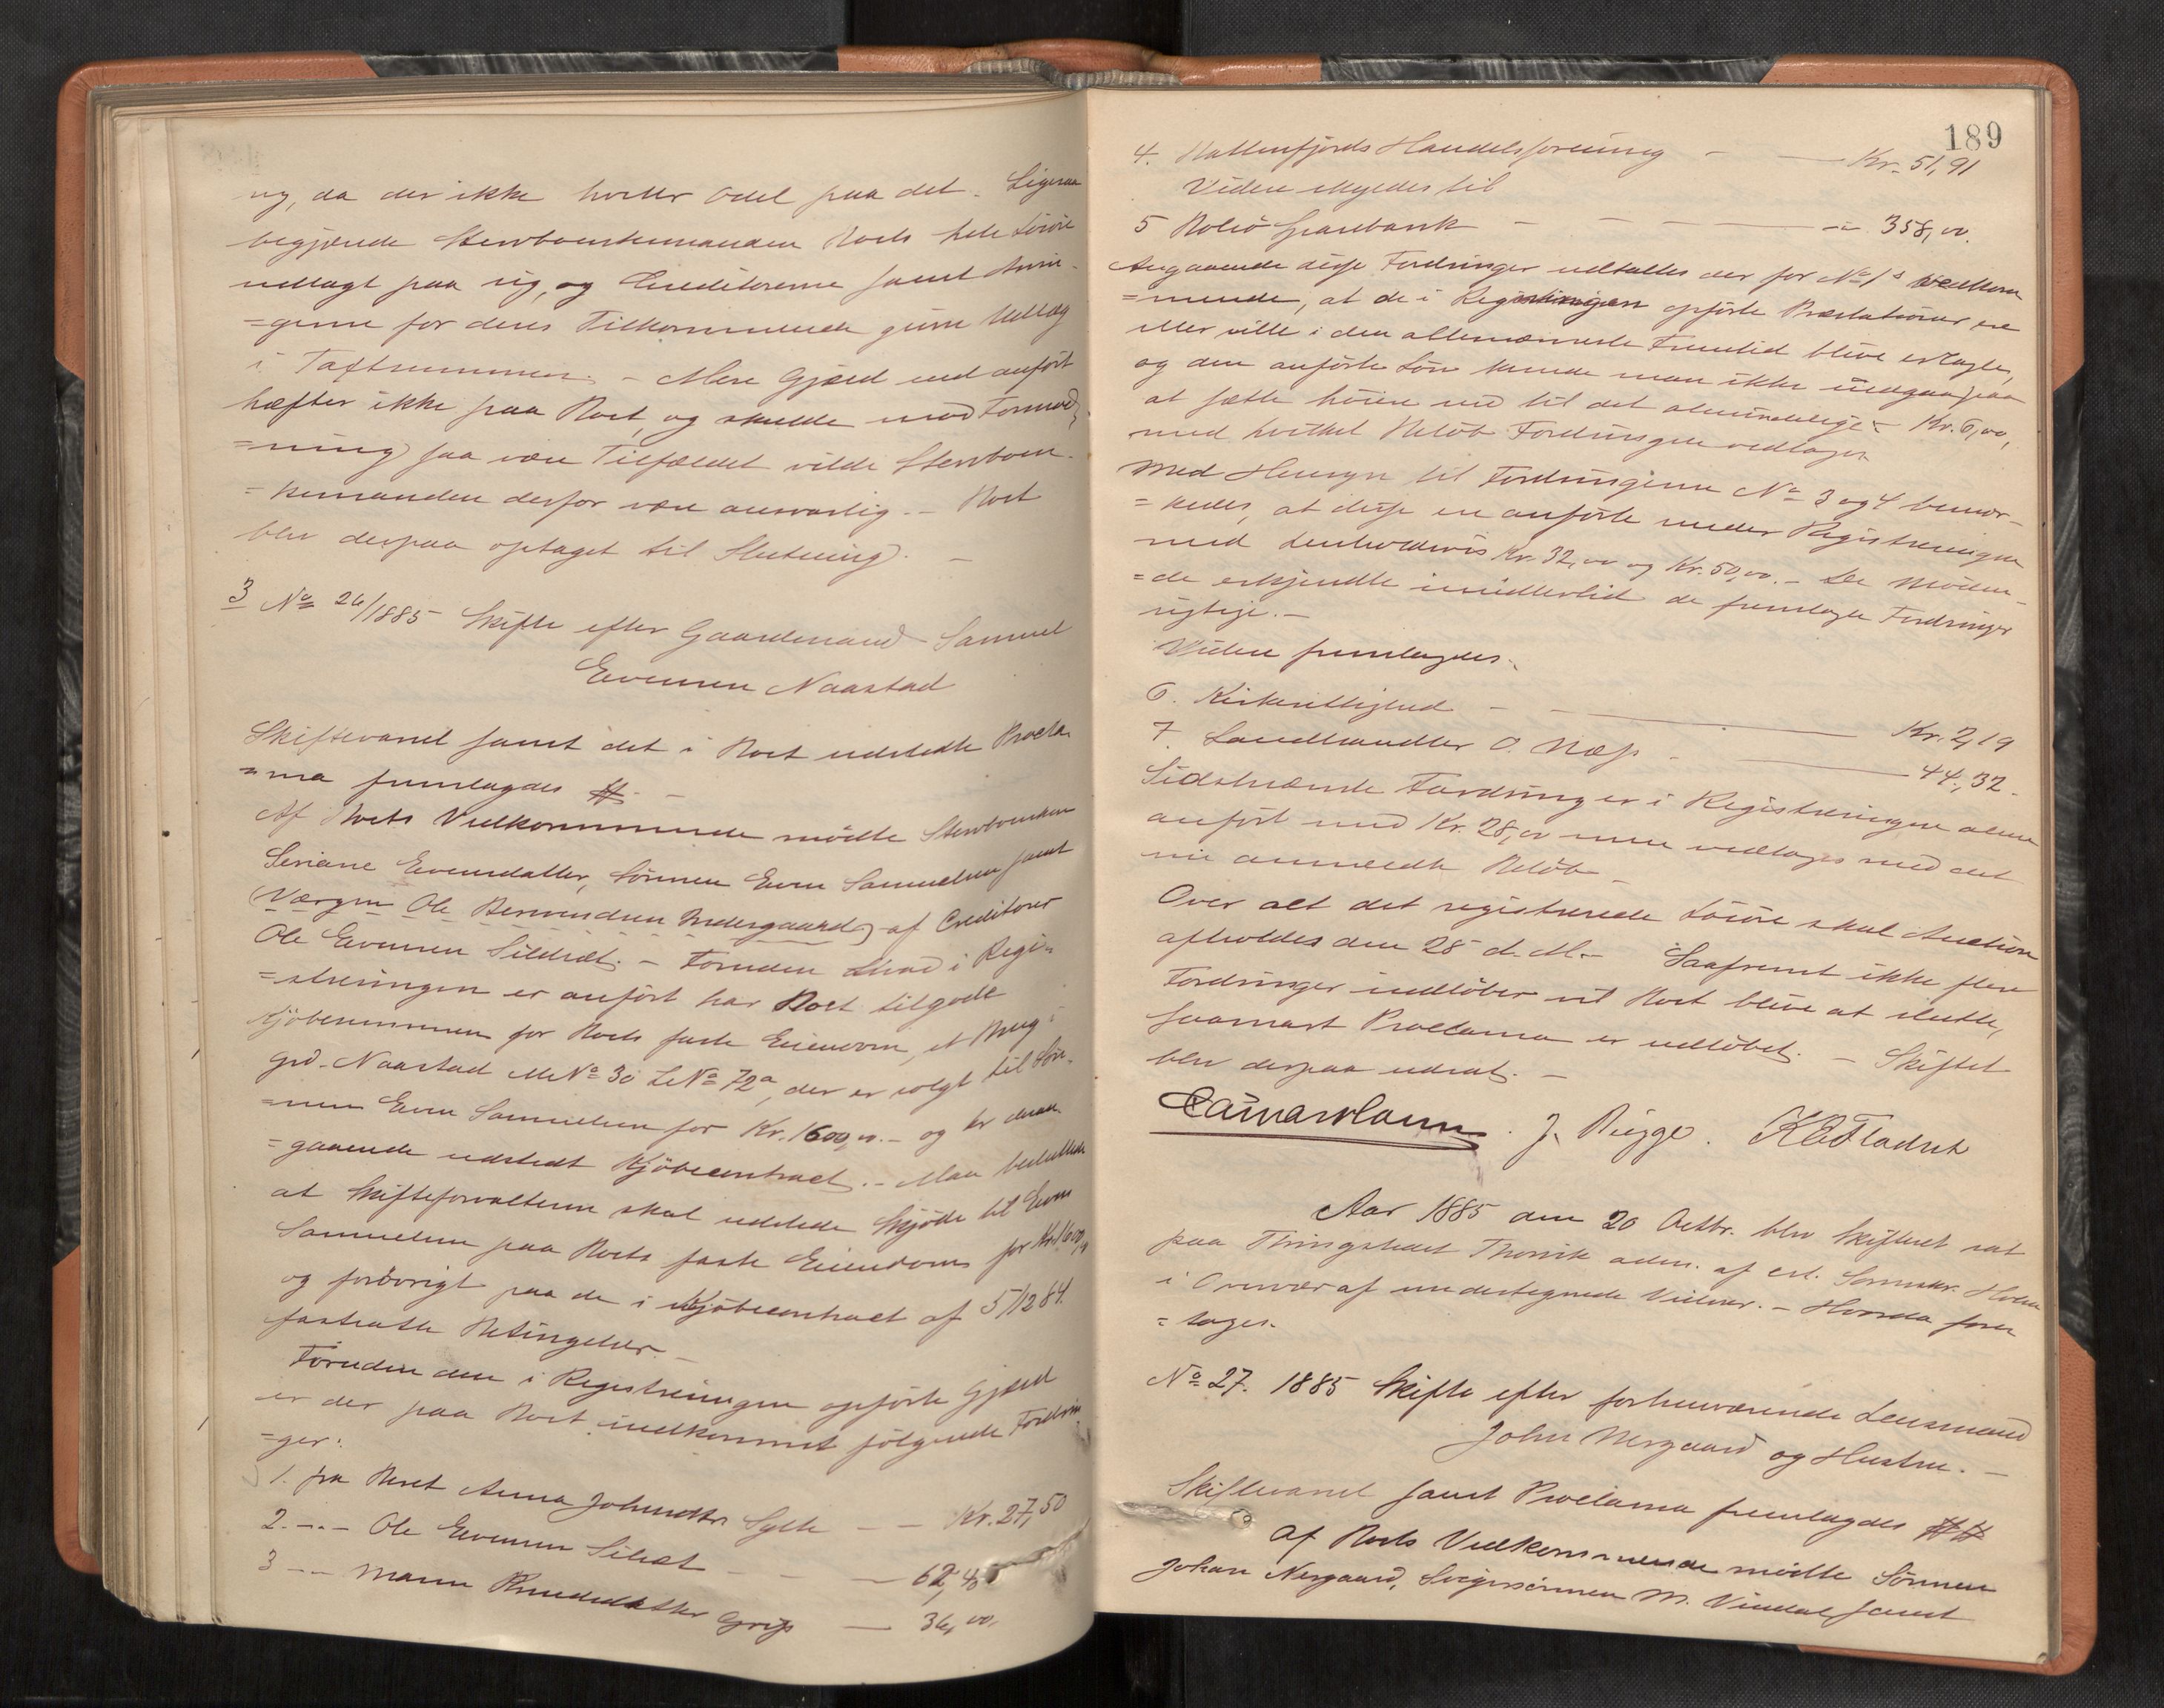 sig, da der ikke hviler Odel paa det. Ligesaa
begjærede Stervboenkemanden Boets hele Løsøre
udlagt paa sig, og Creditorerne samt Arvin-
=gerne for deres Tilkommende givne Udlæg
i Taxtsummen. – Mere Gjæld end anført
hæfter ikke paa Boet, og skulde mod Formod-
=ning saa være Tilfældet vilde Stervboen-
=kemanden derfor være ansvarlig. – Boet
blev derpaa optaget til Slutning. –
3 No 26/1885 Skifte efter Gaardmand Samuel
Evensen Naastad
Skiftevarsel samt det i Boet udstedte Procla-
=ma fremlagdes #. –
Af Boets Vedkommende mødte Stervboenken
Seriane Evensdatter, Sønnen Even Samuelsen samt
(Værgen Ole Nedergaard) af Creditorer
Ole Evensen Sildset. – Foruden hvad i Regi-
=streringen er anført har Boet tilgode
Kjøbesummen for Boets faste Eiendom, et Brug i
Grd. Naastad MNo 30 LNo 72a, der er solgt til Søn-
=nen Even Samuelsen for Kr. 1600,00. – og er desan-
=gaaende udstedt Kjøbecontract. – Man besluttede
at Skifteforvalteren skal udstede Skjøde til Even
Samuelsen paa Boets faste Eiendom for Kr. 1600,00
og forøvrigt paa de i Kjøbecontract af 5/12 84.
fastsatte Betingelser. –
Foruden den i Registreringen opførte Gjæld
er der paa Boet indkommet følgende Fordrin-
=ger:
1. fra Beret Anna Johnsdtr Sylte – – Kr. 27,50
2. –"– Ole Evensen Sildset – – – 62,40
3 –"– Maren Knudsdatter Grip – 36,00.
189
4. Battenfjords Handelsforening – – Kr. 51,91
Videre skyldes til
5 Bolsø Sparebank – – – –"– 358,00.
Angaaende disse Fordringer udtaltes der for No 1s vedkom-
=mende, at de i Registreringen opførte Præstationer ere
eller ville i den allernærmeste Fremtid blive erlagte,
og den anførte Løn kunde man ikke indgaa paa
at sætte høiere end til det almindelige – Kr. 6,00,
med hvilket Beløb Fordringen vedtages.
Med Hensyn til Fordringerne No 3 og 4 bemær-
=kedes, at disse ere anførte under Registreringen
med henholdsvis Kr. 32,00 og Kr. 50,00. – De Møden-
=de erkjendte imidlertid de fremlagte Fordringer
rigtige. –
Videre fremlagdes.
6. Kirkerettighed – – – Kr. 2,19
7. Landhandler O. Næss – – 44,32.
Sidstnævnte Fordring er i Registreringen alene
anført med Kr. 28,00 men vedtages med det
nu anmeldte Beløb –
Over alt det registrerede Løsøre skal Auction
afholdes den 28 d. M. – Saafremt ikke flere
Fordringer indløber vil Boet blive at slutte,
saasnart Proclama er udløbet. – Skiftet
blev derpaa udsat. –
J. Rigge. K E Fladset
Aar 1885 den 20 Octbr. blev Skifteret sat
paa Thingstedet Thorvik adm. af cst. Sorenskr. Holm
i Overvær af undertegnede Vidner. – Hvorda fore-
=toges.
No 27. 1885 Skifte efter forhenværende Lensmand
John Nergaard og Hustru. –
Skiftevarsel samt Proclama fremlagdes ##
Af Boets Vedkommende mødte Sønnen
Johan Nergaard, Svigersønnen M. Vindal samt